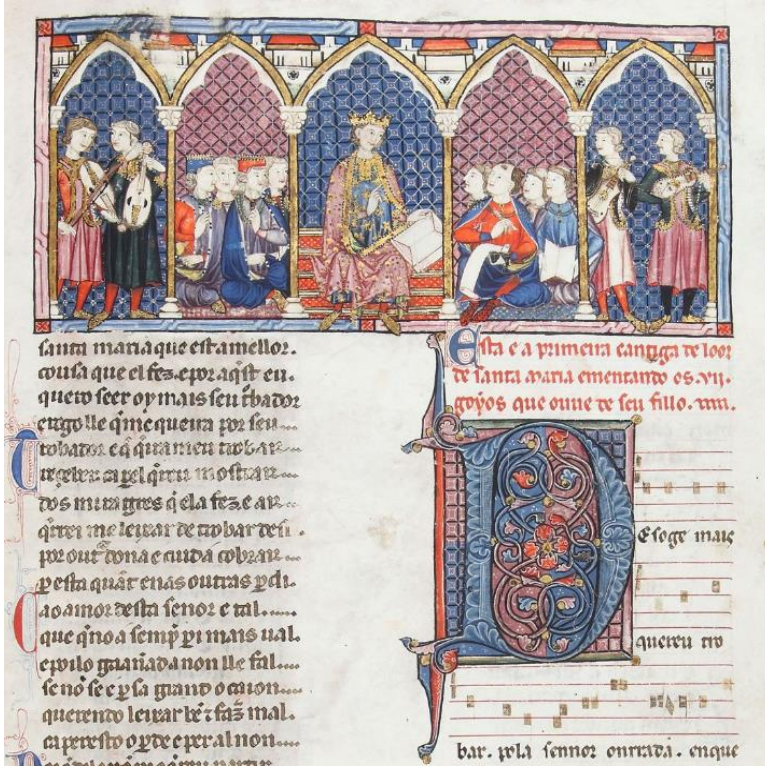 santa maria que est a mellor.
cousa que el fez. e por aqst eu.
quero seer oy mais seu trobador
e rogo lle q̇ me queira por seu
trobador e q̇ q̇ira meu trobar
reçeber. ca per el q̇r eu mostrar
dos miragres q̇ ela fez. e ar
q̇rrei me leixar de trobar desi
por outra dona e cuida cobrar
per esta quãt enas outras ꝑdi.
ao amor desta senor e tal
que q̇ no a semp̃ ꝑi mais ual.
e poilo gaannada non lle fal
se nõ se e ꝑ sa grand ocaion
querendo leixar bẽ ⁊ faz̃ mal.
ca per esto o ꝑde e per al non
Esta e a primeira cantiga de loor
de santa maria ementando os .vii.
goyos que ouue de seu fillo.
Des oge mais
quer eu tro
bar. pola sennor onrrada. en que